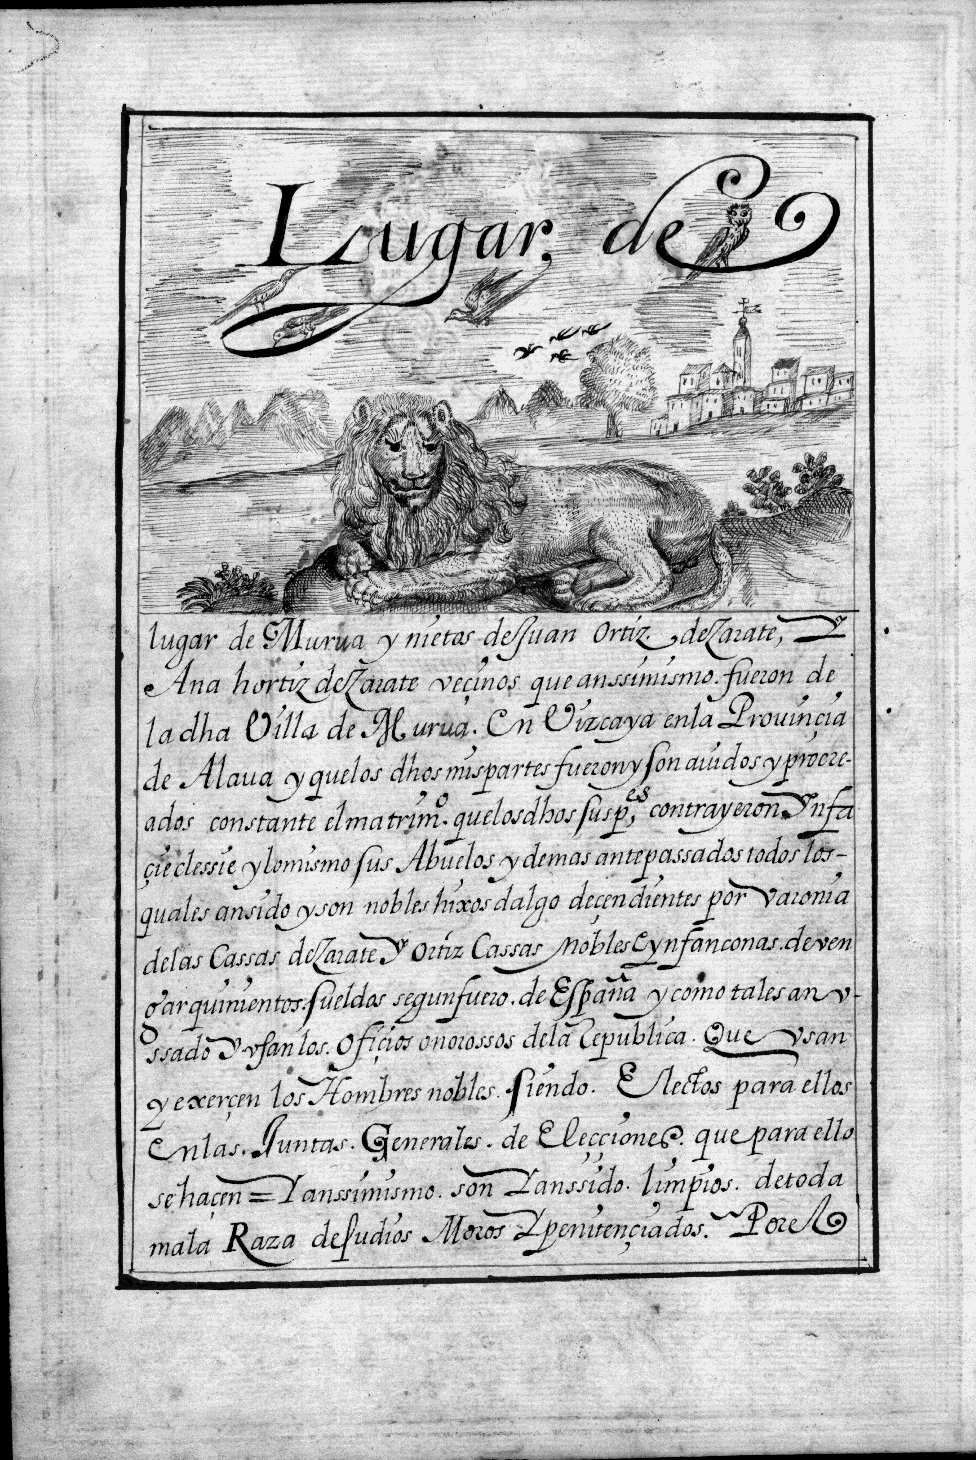 Lugar, de
lugar de Murua y nietas de Juan Ortiz. de Zarate, Y
Ana hortiz de Zarate veçinos que anssimismo. fueron de
la dha Villa de Murua. En Vizcaya en la Prouinçia
de Alaua y que los dhos mis partes fueron y son auidos y procre-
ados constante el matrimº. que los dhos sus p,es contrayeron Ynfa
çie clessie y lo mismo sus Abuelos y demas antepassados todos los-
quales an sido y son nobles hixos dalgo deçendientes por varonia
de las Cassas de Zarate Y Ortiz Cassas Nobles E ynfançonas. de ven
gar quinientos. sueldos segun fuero. de España y como tales an v-
ssado Y vsan los. Ofiçios onorossos de la Republica. Que vsan
y exerçen los Hombres nobles. siendo. Electos para ellos
En las. Juntas. Generales. de Elecçiones. que para ello
se haçen = Y anssimismo. son Y an ssido. limpios. de toda
mala Raza de Judios Moros Y penitençiados. Por el